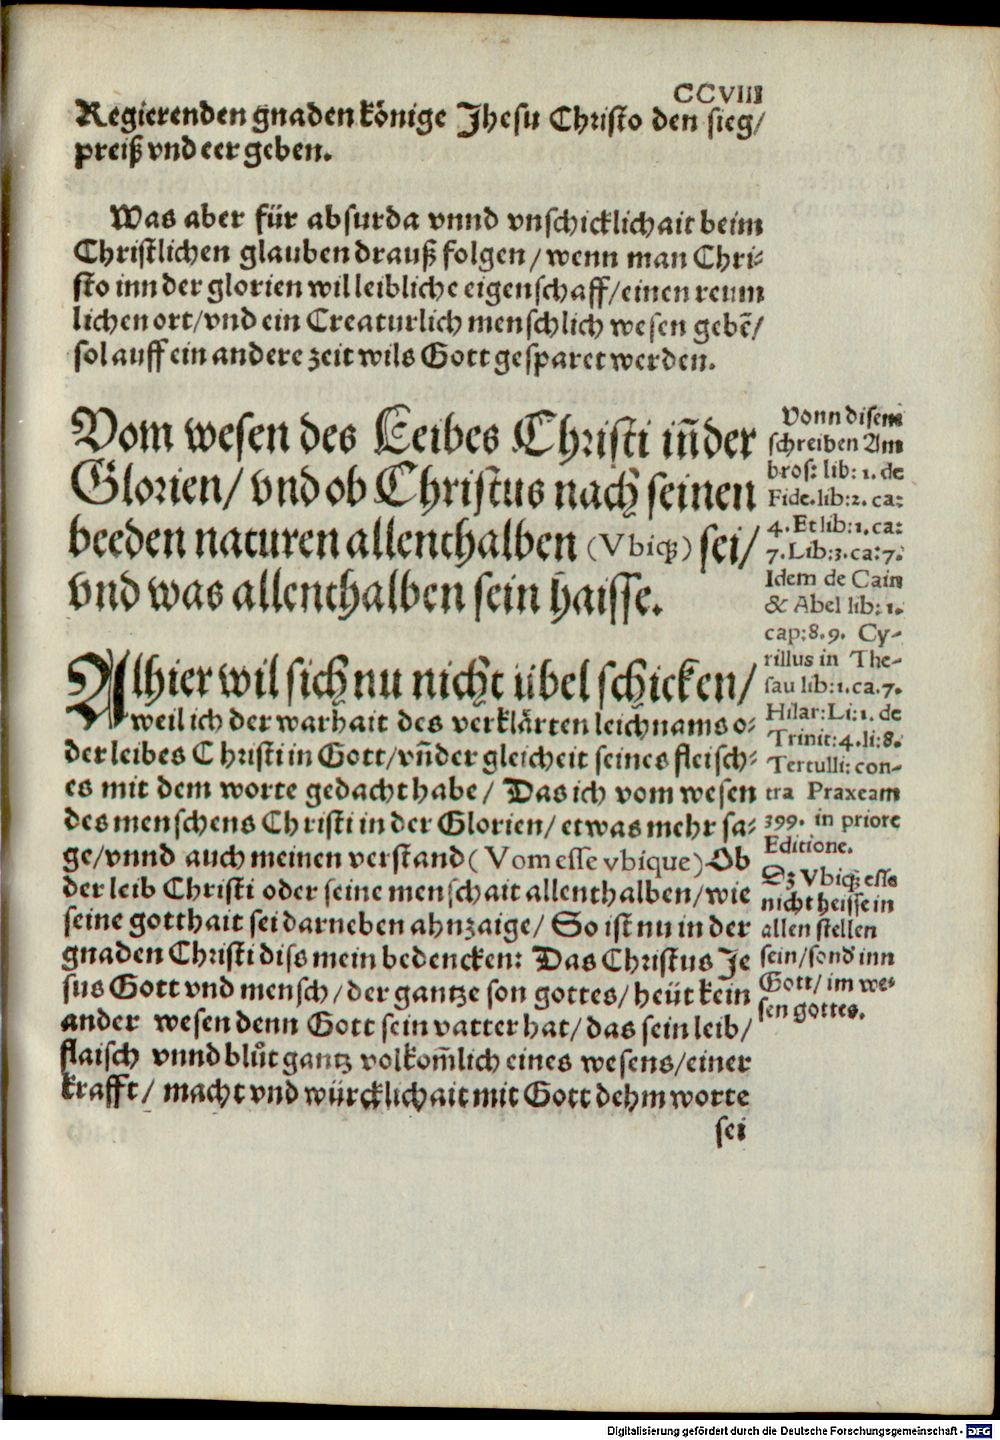 CCVIII
Regierenden gnaden könige Jhesu Christo den sieg/
preiß vnd eer geben.
Was aber für absurda vnnd vnschicklichait beim
Christlichen glauben drauß folgen / wenn man Chri-
sto inn der glorien wil leibliche eigenschaff/ einen reum
lichen ort/ vnd ein Creaturlich menschlich wesen gebẽ/
sol auff ein andere zeit wils Gott gesparet werden.
Vom wesen des Leibes Christi iñ der
Glorien/ vnd ob Christus nach seinen
beeden naturen allenthalben (Vbiqꝫ) sei/
vnd was allenthalben sein haisse.
Alhier wil sich nu nicht übel schicken/
weil ich der warhait des verklärten leichnams o-
der leibes Christi in Gott/ vñ der gleicheit seines fleisch-
es mit dem worte gedacht habe/ Das ich vom wesen
des menschens Christi in der Glorien/ etwas mehr sa-
ge/ vnnd auch meinen verstand (Vom esse vbique) Ob
der leib Christi oder seine menschait allenthalben/ wie
seine gotthait sei darneben ahnzaige/ So ist nu in der
gnaden Christi diss mein bedencken: Das Christus Je
sus Gott vnd mensch / der gantze son gottes/ heüt kein
ander wesen denn Gott sein vatter hat/ das sein leib/
flaisch vnnd blůt gantz volkom̃lich eines wesens/ einer
krafft/ macht vnd würcklichait mit Gott dehm worte
sei
Vonn disem
schreiben Am
bros: lib: 1. de
Fide. lib: 2. ca:
4. Et lib: 1. ca:
7. Lib: 3. ca: 7.
Idem de Cain
& Abel lib: 1.
cap: 8. 9. Cy-
rillus in The-
sau lib: 1. ca. 7.
Hilar: Li: 1. de
Trinit: 4. li: 8.
Tertulli: con-
tra Praxeam
399. in priore
Editione.
Dz Vbiqꝫ esse
nicht heisse in
allen stellen
sein/ sond inn
Gott/ im we-
sen gottes.
Digitalisierung gefördert durch die Deutsche Forschungsgemeinschaft - DFG